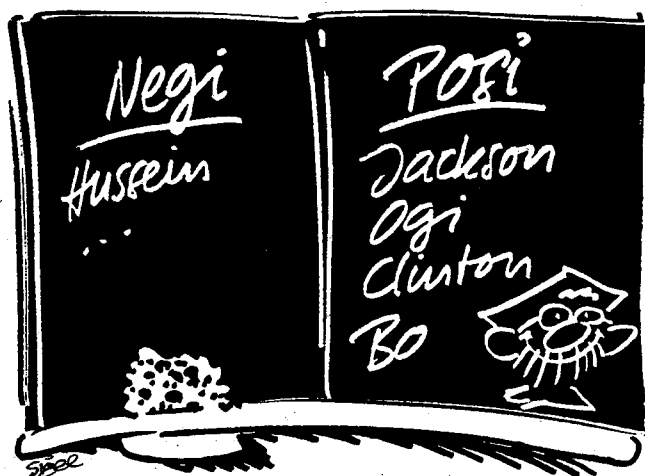 Negi
Hussein
...
Posi
Jackson
Ogi
Clinton
Bo